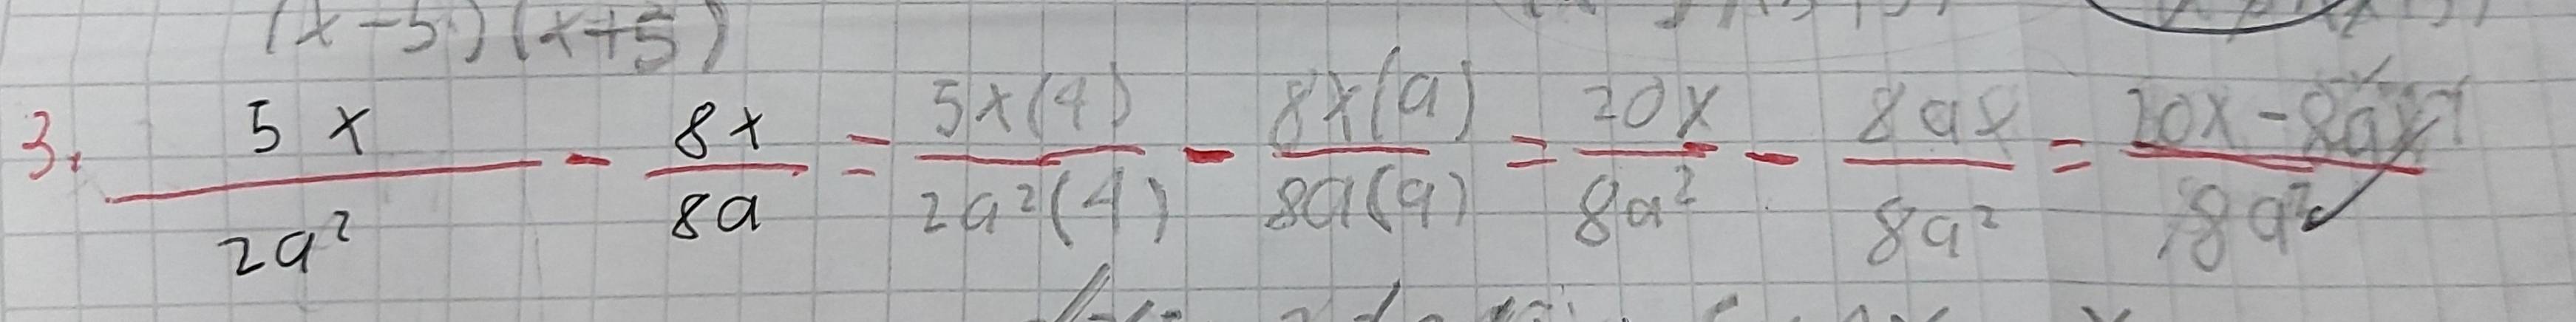 (x-5)(x+5)
3. 5x/2a² - 8x/8a = 5x(4)/2a²(4) - 8x(a)/8a(a) = 20x/8a² - 8ax/8a² = 20x-8ax/8a²